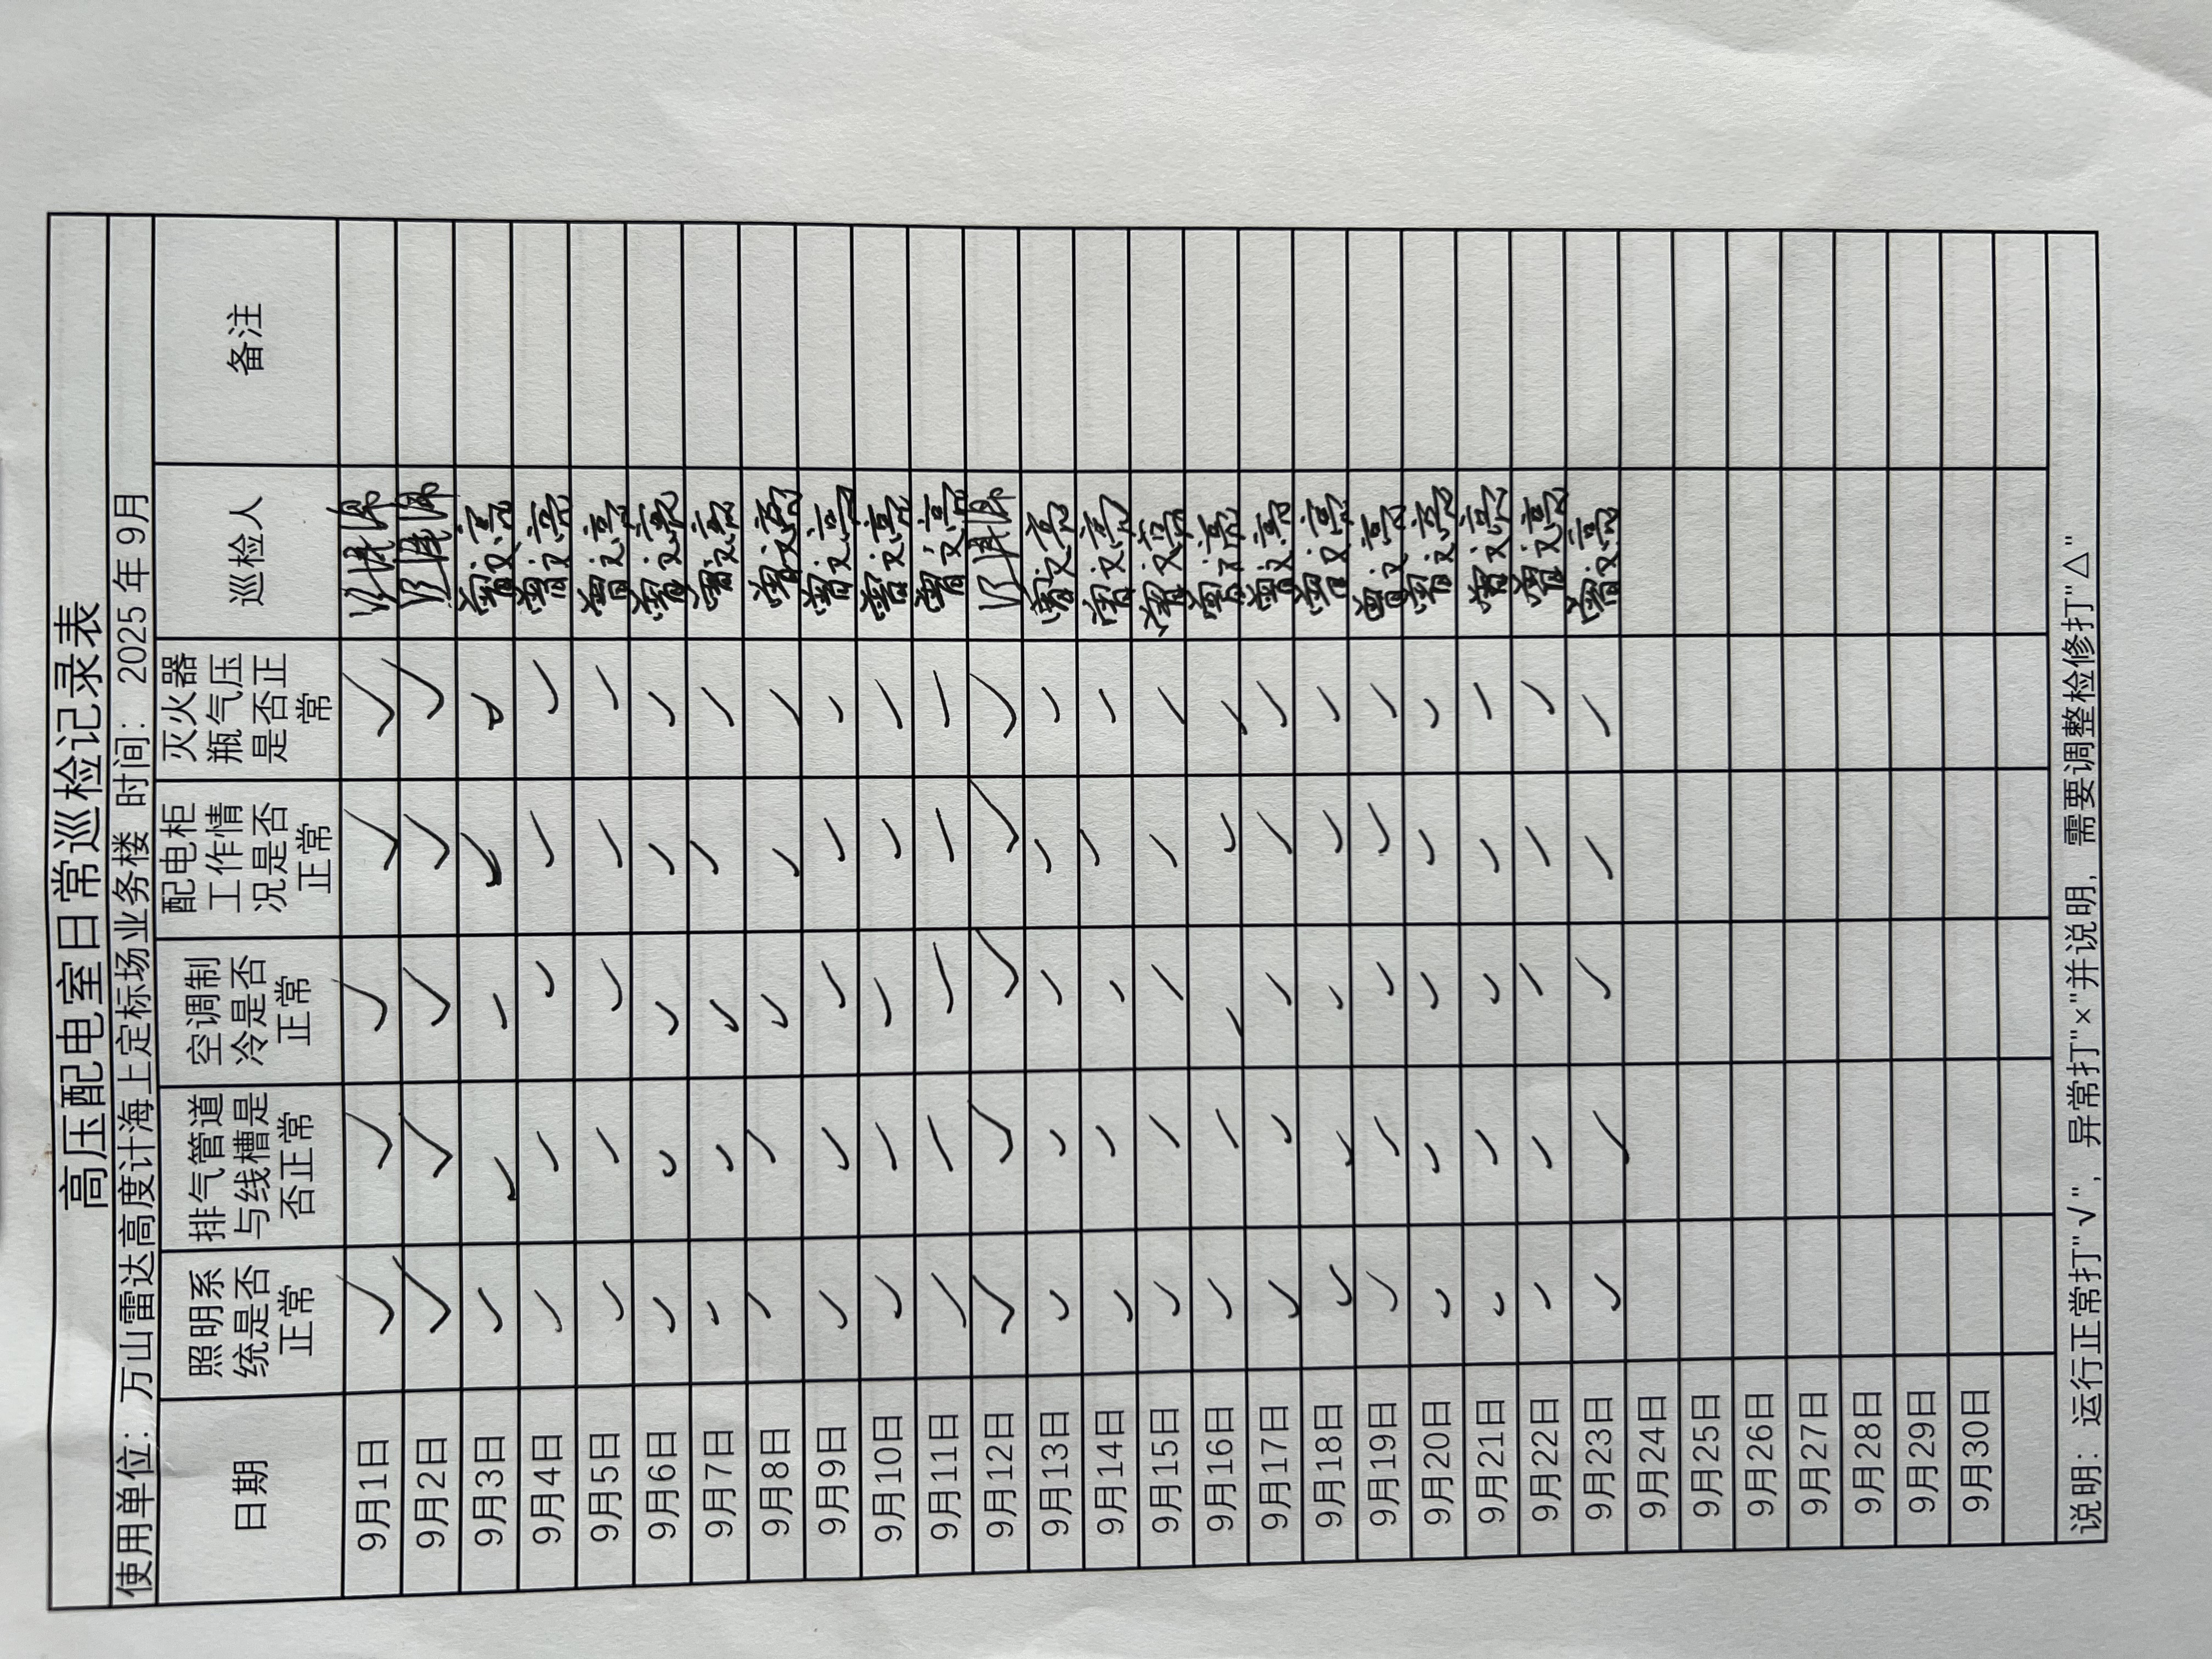 高压配电室日常巡检记录表
使用单位：万山雷达高度计海上定标场业务楼 时间：2025年9月
日期 照明系统是否正常 排气管道与线槽是否正常 空调制冷是否正常 配电柜工作情况是否正常 灭火器瓶气压是否正常 巡检人 备注
9月1日 √ √ √ √ √
9月2日 √ √ √ √ √
9月3日 √ √ √ √ √ 文亮
9月4日 √ √ √ √ √ 文亮
9月5日 √ √ √ √ √ 文亮
9月6日 √ √ √ √ √ 文亮
9月7日 √ √ √ √ √ 文亮
9月8日 √ √ √ √ √ 文亮
9月9日 √ √ √ √ √ 文亮
9月10日 √ √ √ √ √ 文亮
9月11日 √ √ √ √ √ 文亮
9月12日 √ √ √ √ √
9月13日 √ √ √ √ √ 文亮
9月14日 √ √ √ √ √ 文亮
9月15日 √ √ √ √ √ 文亮
9月16日 √ √ √ √ √ 文亮
9月17日 √ √ √ √ √ 文亮
9月18日 √ √ √ √ √ 文亮
9月19日 √ √ √ √ √ 文亮
9月20日 √ √ √ √ √ 文亮
9月21日 √ √ √ √ √ 文亮
9月22日 √ √ √ √ √ 文亮
9月23日 √ √ √ √ √ 文亮
9月24日
9月25日
9月26日
9月27日
9月28日
9月29日
9月30日
说明：运行正常打"√"，异常打"×"并说明，需要调整检修打"△"